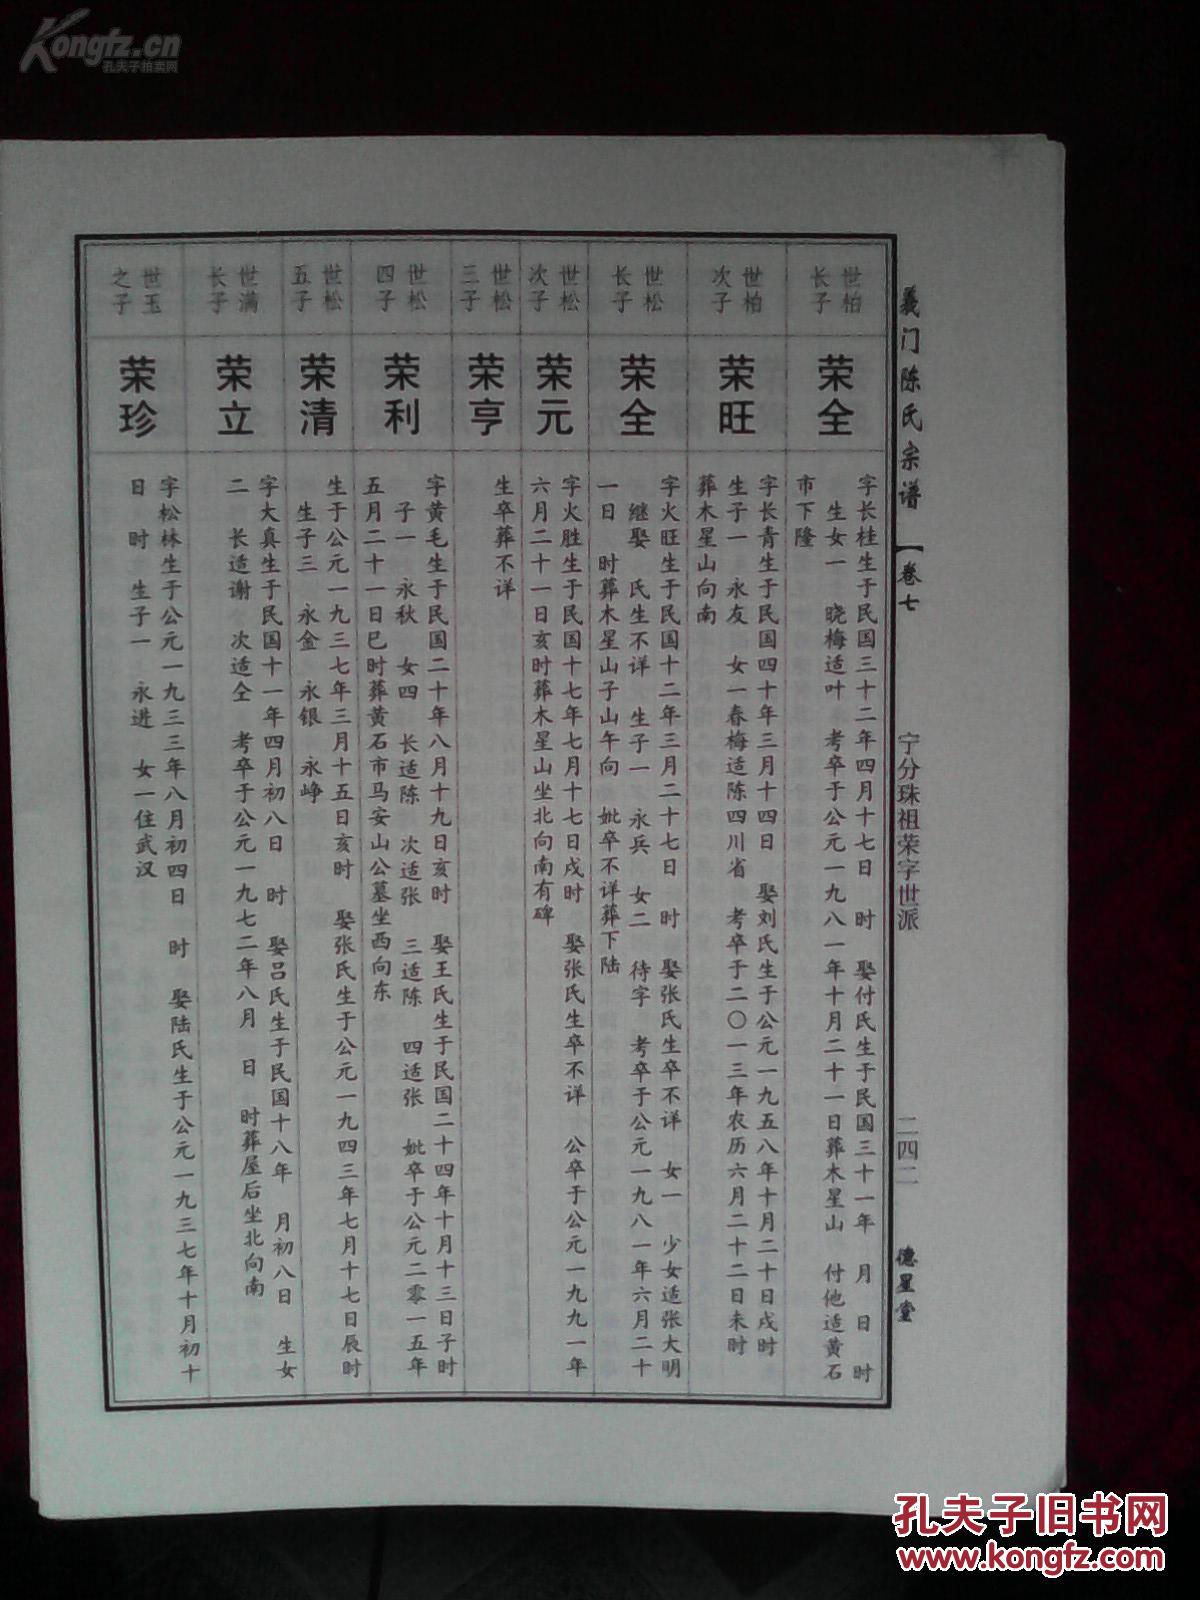 Kongfz.cn
孔夫子拍卖网
義门陈氏宗谱
【卷七
宁分珠祖荣字世派
二四二
德星堂
世柏
长子
荣全
字长桂生于民国三十二年四月十七日 时 娶付氏生于民国三十一年 月 日 时
生女一 晓梅适叶 考卒于公元一九八一年十月二十一日葬木星山 付他适黄石
市下隆
世柏
次子
荣旺
字长青生于民国四十年三月十四日 娶刘氏生于公元一九五八年十月二十日戌时
生子一 永友 女一春梅适陈四川省 考卒于二〇一三年农历六月二十二日未时
葬木星山向南
世松
长子
荣全
字火旺生于民国十二年三月二十七日 时 娶张氏生卒不详 女一 少女适张大明
继娶 氏生不详 生子一 永兵 女二 待字 考卒于公元一九八一年六月二十
一日 时葬木星山子山午向 妣卒不详葬下陆
世松
次子
荣元
字火胜生于民国十七年七月十七日戌时 娶张氏生卒不详 公卒于公元一九九一年
六月二十一日亥时葬木星山坐北向南有碑
世松
三子
荣亨
生卒葬不详
世松
四子
荣利
字黄毛生于民国二十年八月十九日亥时 娶王氏生于民国二十四年十月十三日子时
子一 永秋 女四 长适陈 次适张 三适陈 四适张 妣卒于公元二零一五年
五月二十一日巳时葬黄石市马安山公墓坐西向东
世松
五子
荣清
生于公元一九三七年三月十五日亥时 娶张氏生于公元一九四三年七月十七日辰时
生子三 永金 永银 永峥
世满
长子
荣立
字大真生于民国十一年四月初八日 时 娶吕氏生于民国十八年 月初八日 生女
二 长适谢 次适仝 考卒于公元一九七二年八月 日 时葬屋后坐北向南
世玉
之子
荣珍
字松林生于公元一九三三年八月初四日 时 娶陆氏生于公元一九三七年十月初十
日 时 生子一 永进 女一住武汉
孔夫子旧书网
www.kongfz.com